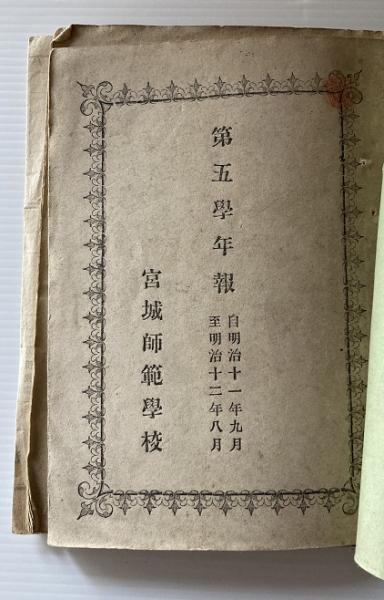 第五學年報
自明治十一年九月
至明治十二年八月
宮城師範學校